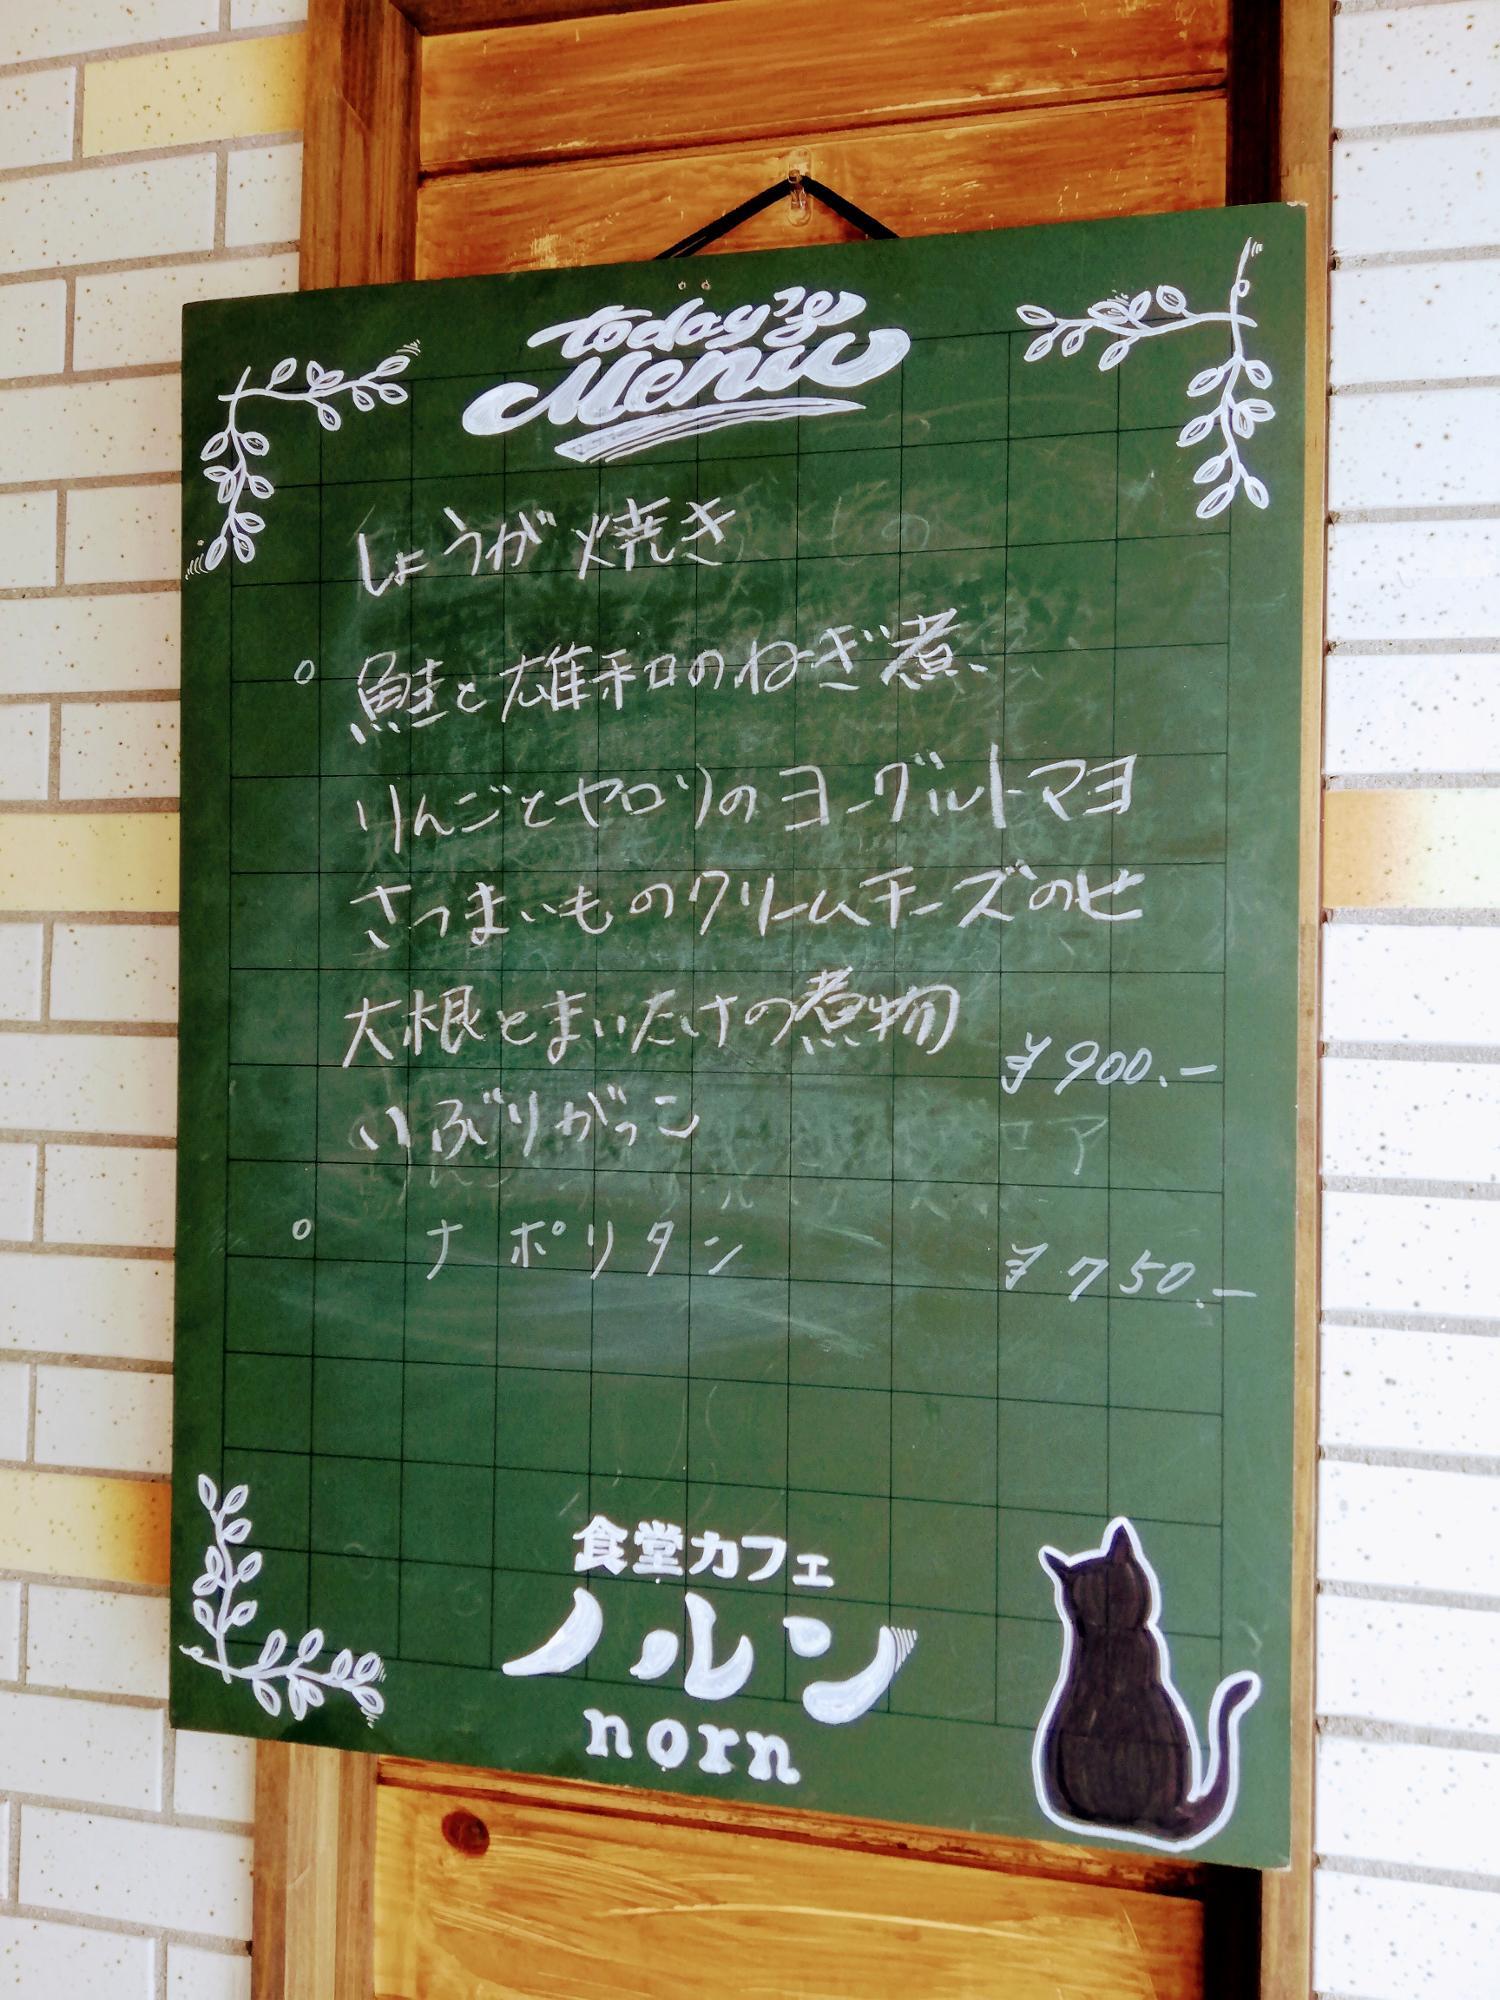 today's
Menu
しょうが焼き
○ 鮭と雄和のねぎ煮、
りんごとヤロリのヨーグルトマヨ
さつまいものクリームチーズのせ
大根とまいたけの煮物
¥900.-
いぶりがっこ
○ ナポリタン ¥750.-
食堂カフェ
ノルン
norn